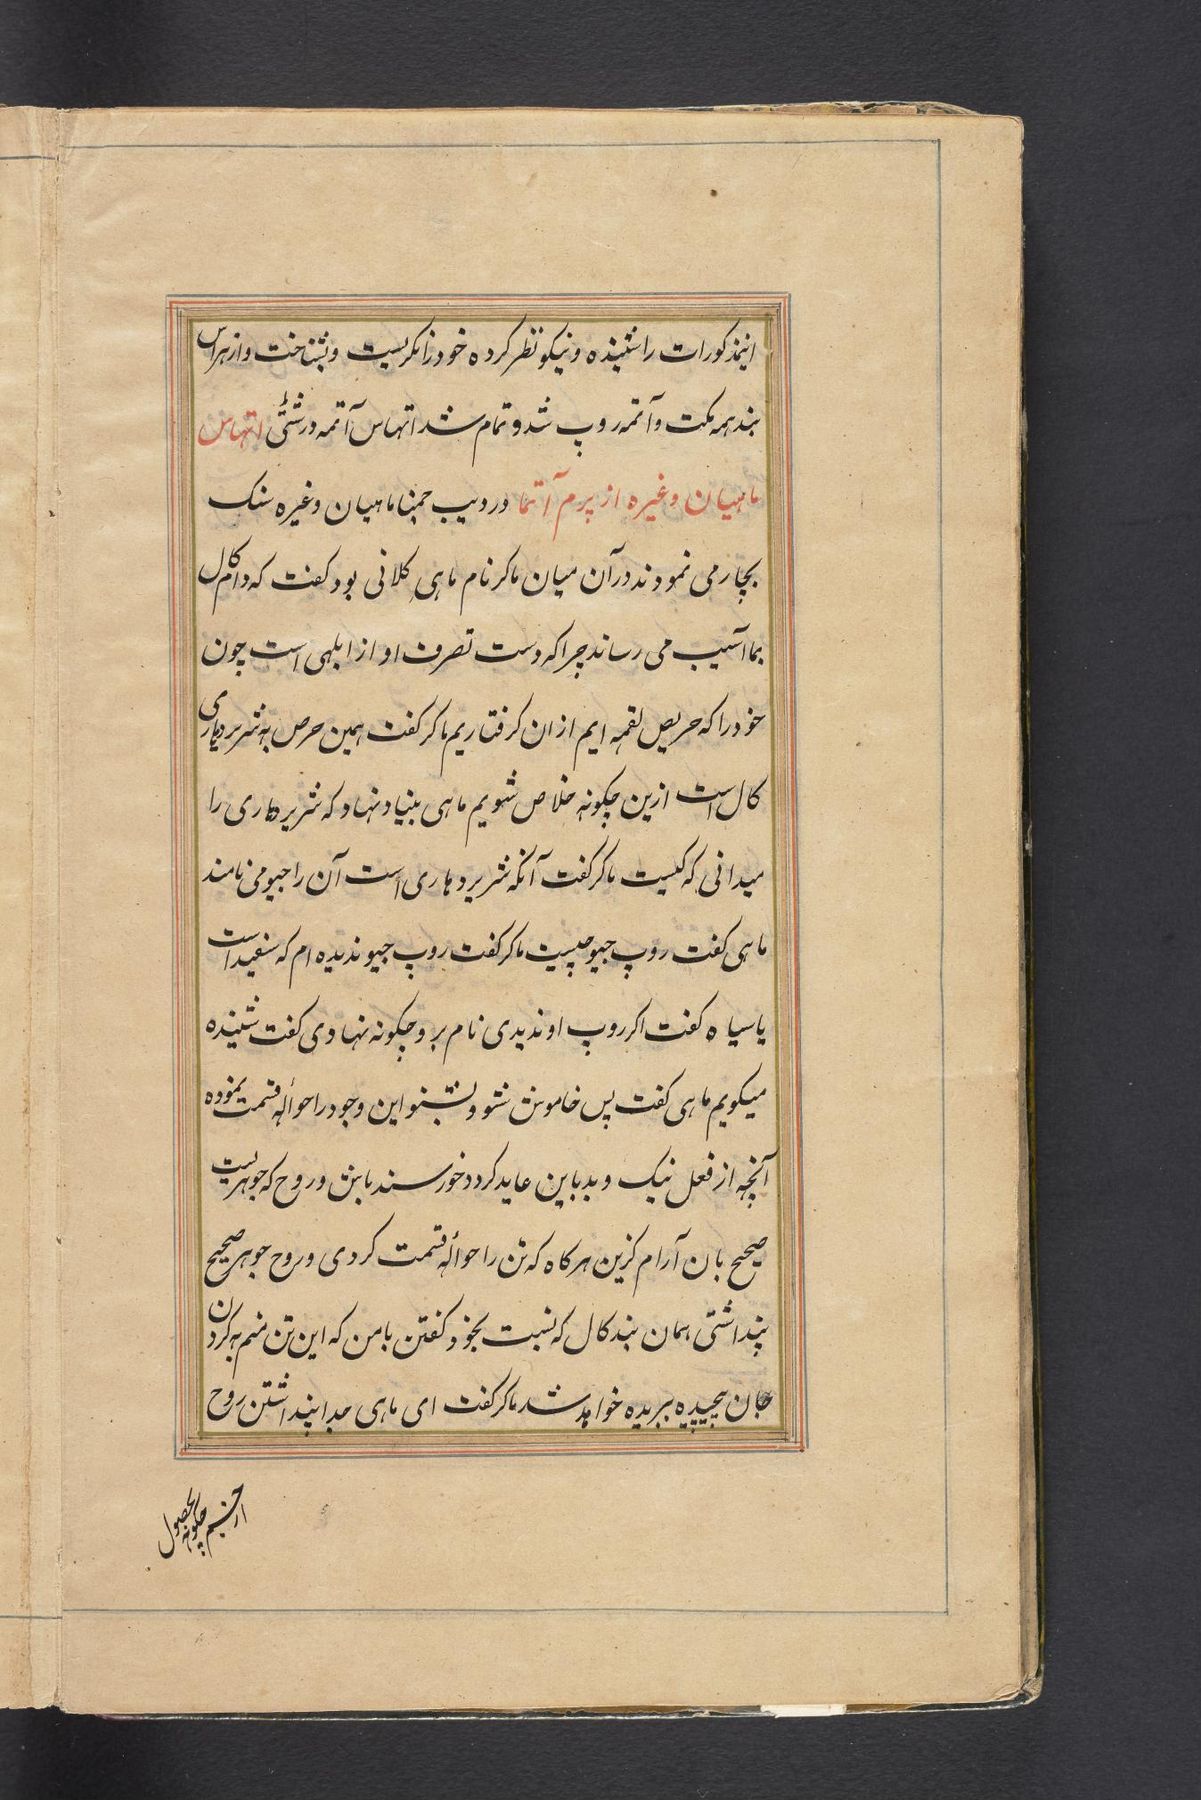 اینمذکورات را شنیده و نیکو نظر کرده خود را نکریست و بشناخت و از هراس
بند همه مکت و آتمه روپ شد و تمام شد اتهاس آتمه درشتی اتهاس
ماهیان وغیره از پرم آتما در دیپ جمنا ماهیان وغیره سنک
بچار می نمودند در آن میان ماکر نام ماهی کلانی بود کفت که دام کال
بما آسیب می رساند چرا که دست تصرف او از ابلهی است چون
خود را که حریص لقمه ایم ازان کرفتاریم ماکر کفت همین حرص به شریر دهاری
کال است ازین چکونه خلاص شویم ماهی بنیاد نهاد که شریر دهاری را
میدانی که کیست ماکر کفت آنکه شریر دهاری است آن را جیو می نامند
ماهی کفت روپ جیو چیست ماکر کفت روپ جیو ندیده ام که سفید است
یا سیاه کفت اکر روپ او ندیدی نام برو چکونه نهادی کفت شنیده
میکویم ماهی کفت پس خاموش شو و بشنو این وجود را حوالۀ قسمت نموده
آنچه از فعل نیک و بد باین عاید کردد خورسند باش و روح که جوهریست
صحیح بان آرام کزین هرکاه که تن را حوالۀ قسمت کردی و روح جوهر صحیح
پنداشتی همان بند کال که نسبت بخود کفتن با من که این تن منم به کردن
جان پیچیده ببریده خواهد شد ماکر کفت ای ماهی جدا پنداشتن روح
از جسم چکونه بحصول